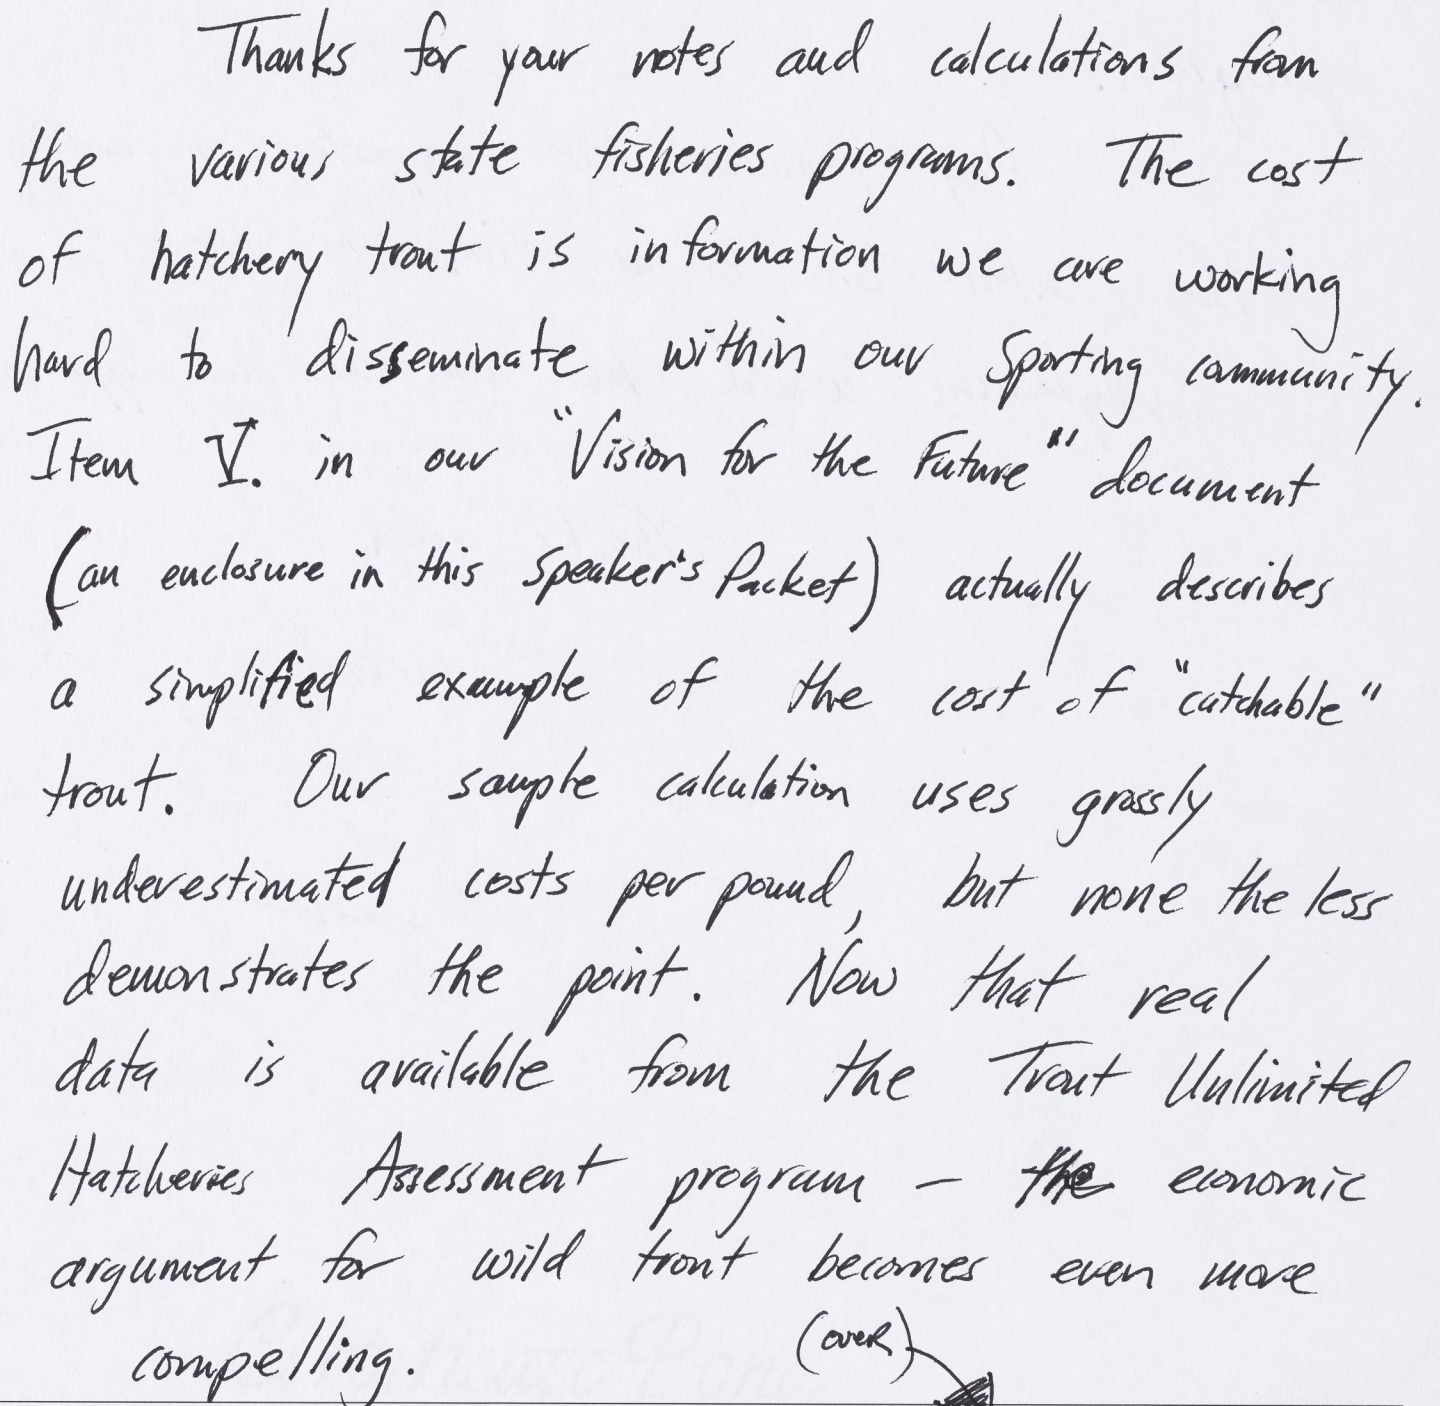 Thanks for your notes and calculations from
the various state fisheries programs. The cost
of hatchery trout is information we are working
hard to disseminate within our Sporting community.
Item V. in our "Vision for the Future" document
(an enclosure in this Speaker's Packet) actually describes
a simplified example of the cost of "catchable"
trout. Our sample calculation uses grossly
underestimated costs per pound, but none the less
demonstrates the point. Now that real
data is available from the Trout Unlimited
Hatcheries Assessment program — the economic
argument for wild trout becomes even more
compelling. (over)